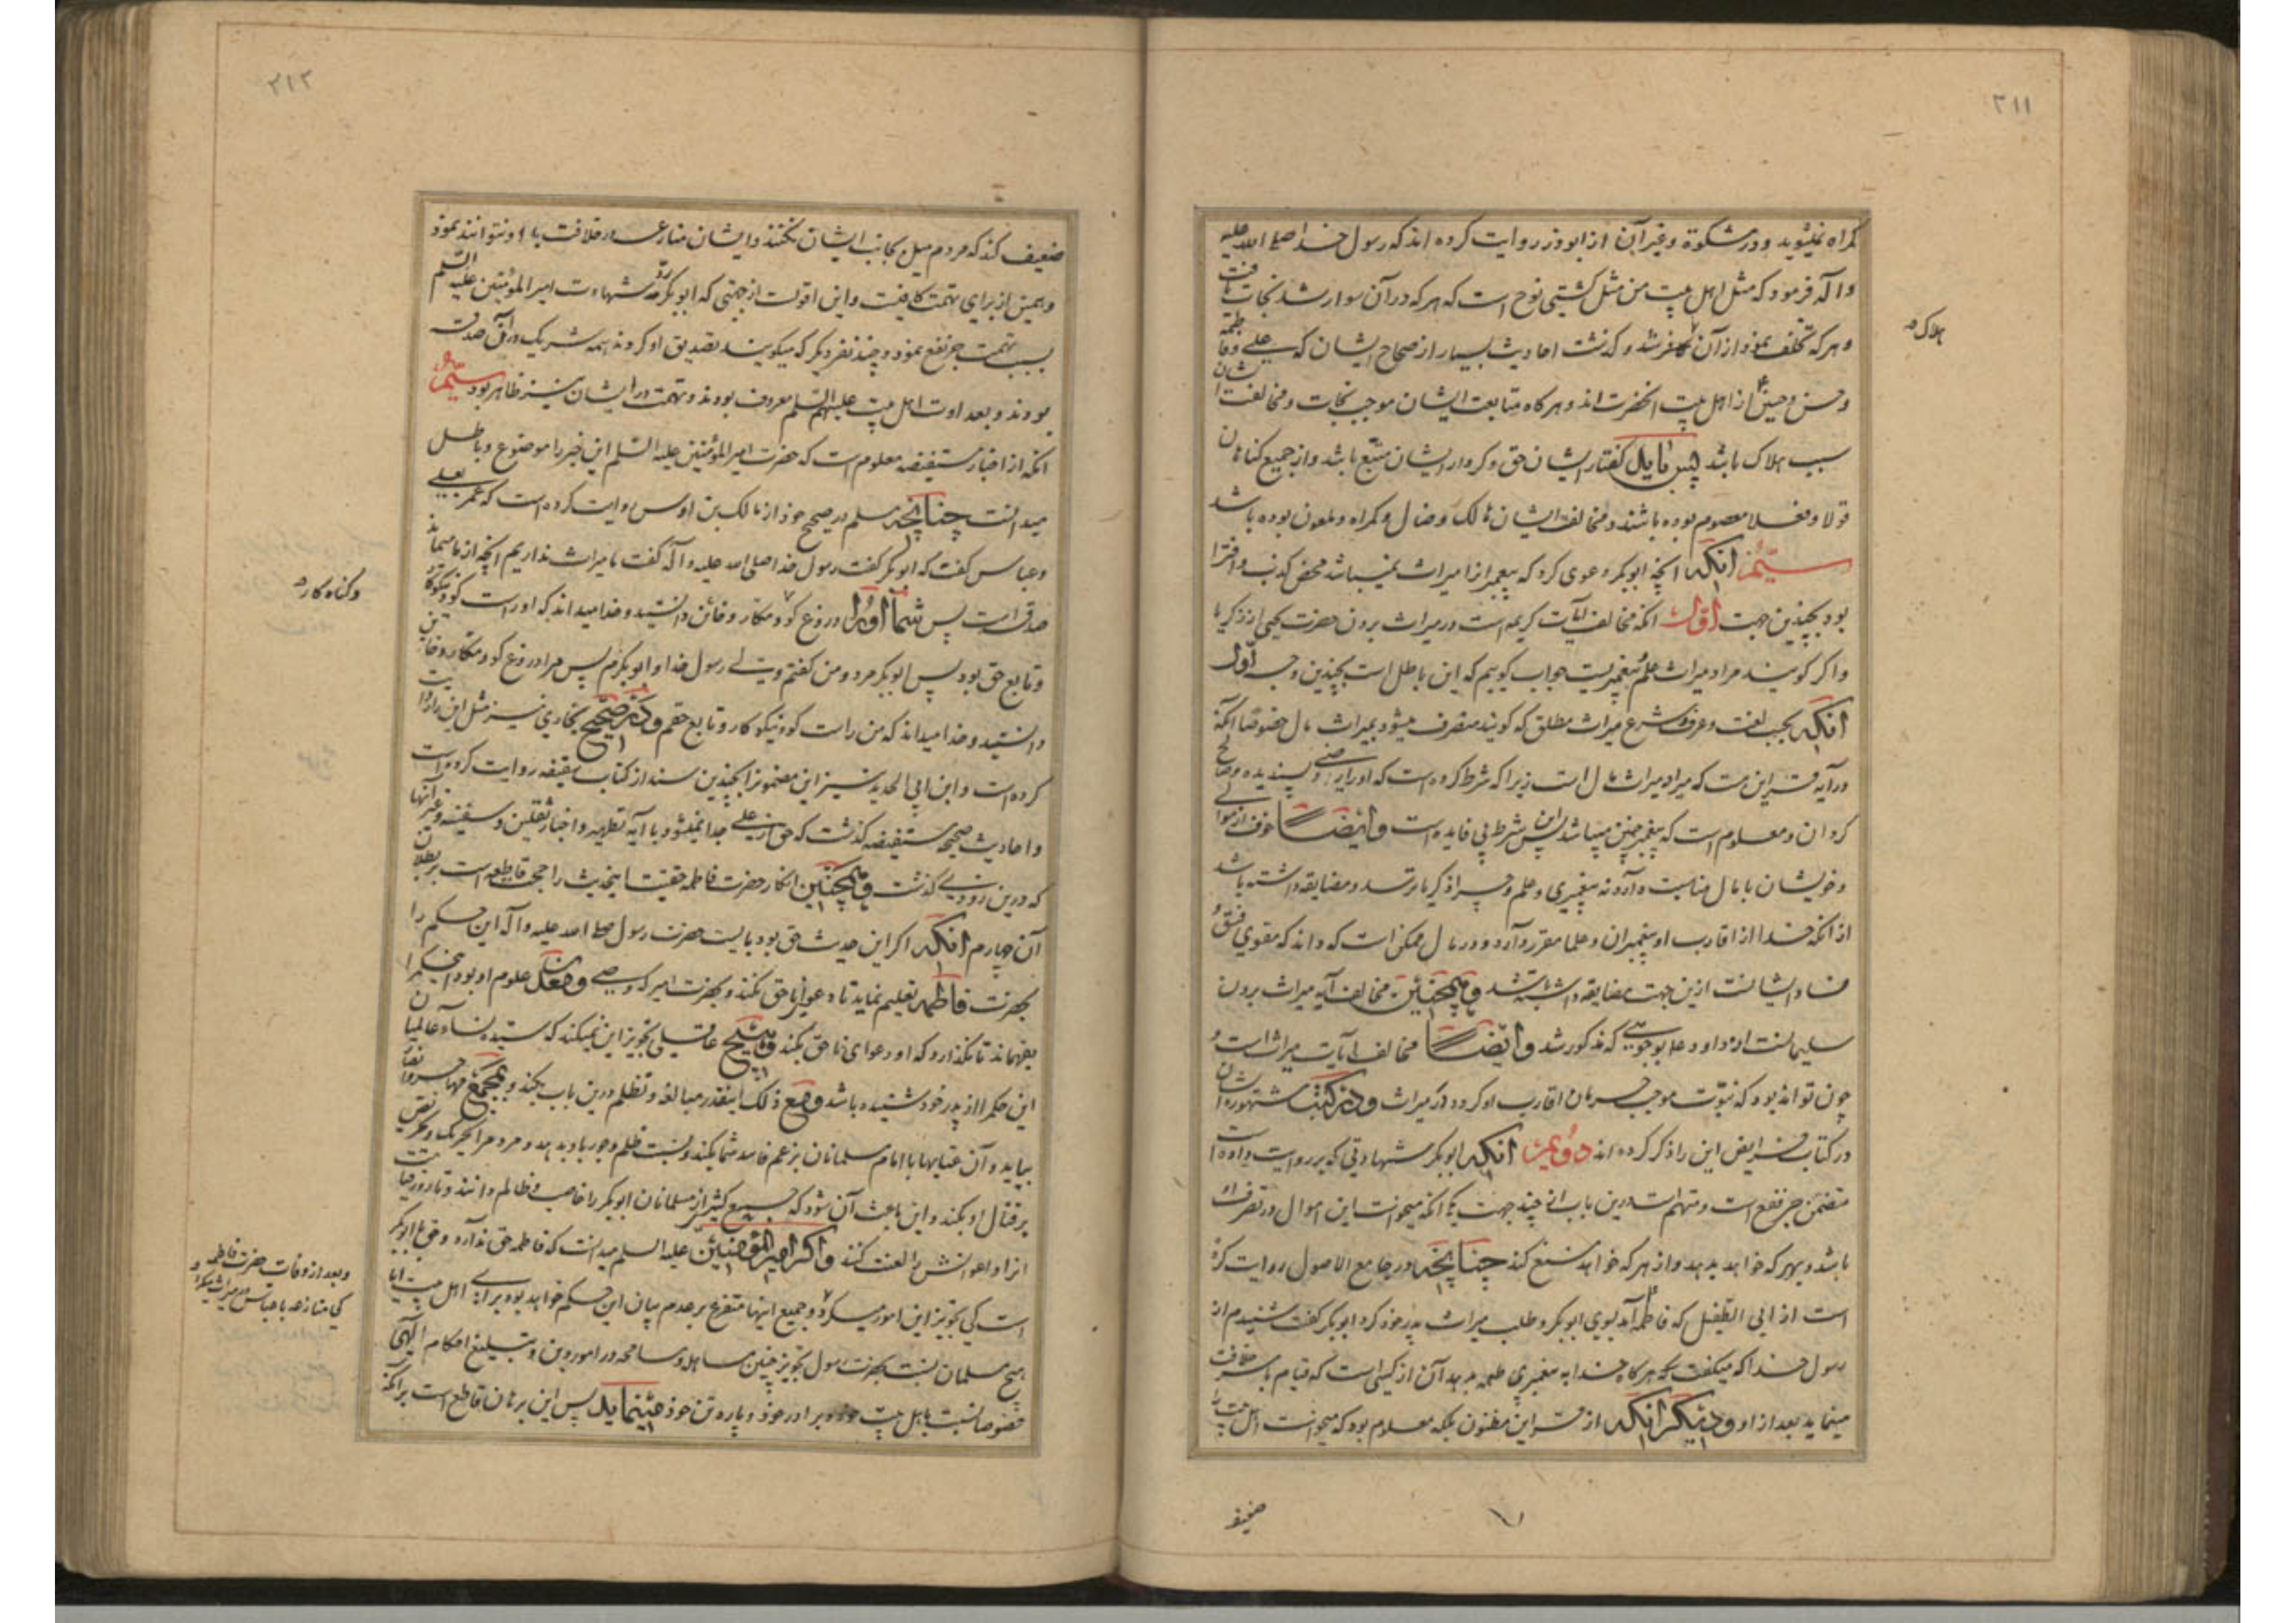 ۲۱۱
کمراه نمیشوید و در مشکوة و غیر آن از ابوذر روایت کرده اند که رسول خدا صلی الله علیه
و آله فرمود که مثل اهل بیت من مثل کشتی نوح است که هر که در آن سوار شد نجات یافت
و هر که تخلف نمود از آن کافر شد و کذشت احادیث بسیار از صحاح ایشان که علی و فاطمه
و حسن و حسین از اهل بیت آنحضرت اند و هر کاه متابعت ایشان موجب نجات و مخالفت ایشان
سبب هلاک باشد پس باید کفتار ایشان حق و کردار ایشان متبع باشد و از جمیع کناهان
قولا و فعلا معصوم بوده باشند و مخالف ایشان هالک و ضال و کمراه و ملعون بوده باشد
سیّم آنکه آنچه ابوبکر دعوی کرد که پیغمبر را میراث نمیباشد محض کذب و افترا
بود بچندین جهت اول آنکه مخالف آیات کریمه است در میراث بردن حضرت یحیی از زکریا
و اکر کویند مراد میراث علم و پیغمبریست جواب کوییم که این باطل است بچندین وجه اول
آنکه بحسب لغت و عرف و شرع میراث مطلق که کویند منصرف میشود بمیراث مال خصوصا آنکه
در آیه قراین هست که مراد میراث مال است زیرا که شرط کرده است که او را رضی و پسندیده و صالح
کردان و معلوم است که پیغمبر چنین میباشد پس این شرط بی فایده است و ایضا خوف از موالی
و خویشان با مال مناسبت دارد نه پیغمبری و علم و چرا زکریا ترسد و مضایقه داشته باشد
از آنکه خدا از اقارب او پیغمبران و علما مقرر دارد و در مال ممکن است که داند که مقوی فسق و
فساد ایشانست ازین جهت مضایقه داشته باشد و همچنین مخالف آیه میراث بردن
سلیمانست از داود علا بوجوهی که مذکور شد و ایضا مخالف آیات میراث است و
چون تواند بود که نبوّت موجب حرمان اقارب او کردد از میراث و در کتب مشهوره ایشان
در کتاب فرایض این را ذکر کرده اند دویم آنکه ابوبکر شهادتی که بر روایت داده است
متضمن جر نفع است و متهم است درین باب از چند جهت یکی آنکه میخواست این اموال در تصرف او
باشد و بهر که خواهد بدهد و از هر که خواهد منع کند چنانچه در جامع الاصول روایت کرده
است از ابی الطفیل که فاطمه آمد بسوی ابوبکر و طلب میراث پدر خود کرد ابوبکر کفت شنیدم از
رسول خدا که میکفت که هر کاه خدا به پیغمبری طعمه بدهد آن از کسی است که قیام بامر خلافت
مینماید بعد از او و دیکر آنکه از قراین مظنون بلکه معلوم بود که میخواست اهل بیت را
هلاک
ضعیف
۲۱۲
ضعیف کند که مردم میل بجانب ایشان نکنند و ایشان منازعه در خلافت با او نتوانند نمود
و همین از برای تهمت کافیست و این اقویست از جهتی که ابوبکر رد شهادت امیر المؤمنین علیه السلم
بسبب تهمت جر نفع نمود و چند نفر دیکر که میکویند تصدیق او کردند همه شریک در آن صدقه
بودند و بعداوت اهل بیت علیهم السلم معروف بودند و تهمت در ایشان نیز ظاهر بود سیّم
آنکه از اخبار مستفیضه معلوم است که حضرت امیر المؤمنین علیه السلم این خبر را موضوع و باطل
میدانست چنانچه مسلم در صحیح خود از مالک بن اوس روایت کرده است که عمر بعلی
و عباس کفت که ابوبکر کفت رسول خدا صلی الله علیه و آله کفت ما میراث نداریم آنچه از ما میماند
صدقه است پس شما او را دروغ کو و مکار و خائن دانستید و خدا میداند که او راست کو و نیکوکار
و تابع حق بود پس ابوبکر مرد و من کفتم ولی رسول خدا و ابوبکرم پس مرا دروغ کو و مکار و خاین
دانستید و خدا میداند که من راست کو و نیکو کار و تابع حقم و در صحیح بخاری نیز مثل این روایت
کرده است و ابن ابی الحدید نیز این مضمون را بچندین سند از کتاب سقیفه روایت کرده است
و احادیث صحیحه مستفیضه کذشت که حق از علی جدا نمیشود با آیه تطهیر و اخبار ثقلین و سفینه و غیر آنها
که درین زودی کذشت و همچنین انکار حضرت فاطمه حقیت اینحدیث را حجت قاطعه است بر بطلان
آن چهارم آنکه اکر این حدیث حق بود بایست حضرت رسول صلی الله علیه و آله این حکم را
بحضرت فاطمه تعلیم نماید تا دعوای ناحق نکند و بحضرت امیر که وصی و معدن علوم او بود این حکم را
بفهماند تا نکذارد که او دعوای ناحق بکند و هیچ عاقلی تجویز این نمیکند که سیده نساء عالمیان
این حکم را از پدر خود شنیده باشد و مع ذلک اینقدر مبالغه و تظلم درین باب بکند و بمجمع مهاجر و انصار
بیاید و آن عتابها با امام مسلمانان بزعم فاسد شما بکند و نسبت ظلم و جور باو بدهد و مردم را تحریک و تحریص
بر قتال او بکند و این باعث آن شود که جمع کثیر از مسلمانان ابوبکر را غاصب و ظالم دانند و تا روز قیامت
او را و اعوانش را لعنت کنند و اکر امیر المؤمنین علیه السلم میدانست که فاطمه حق ندارد و حق با ابوبکر
است کی تجویز این امور میکرد و جمیع اینها متفرع بر عدم بیان این حکم خواهد بود برای اهل بیت آیا
هیچ مسلمان نسبت بحضرت رسول تجویز چنین مساهله و مسامحه در امور دین و تبلیغ احکام الهی
خصوصا نسبت باهل بیت خود و برادر خود و پاره تن خود مینماید پس این برهان قاطع است بر آنکه
و کناه کار
و بعد از وفات حضرت فاطمه
کی منازعه با عباس در میراث میکرد